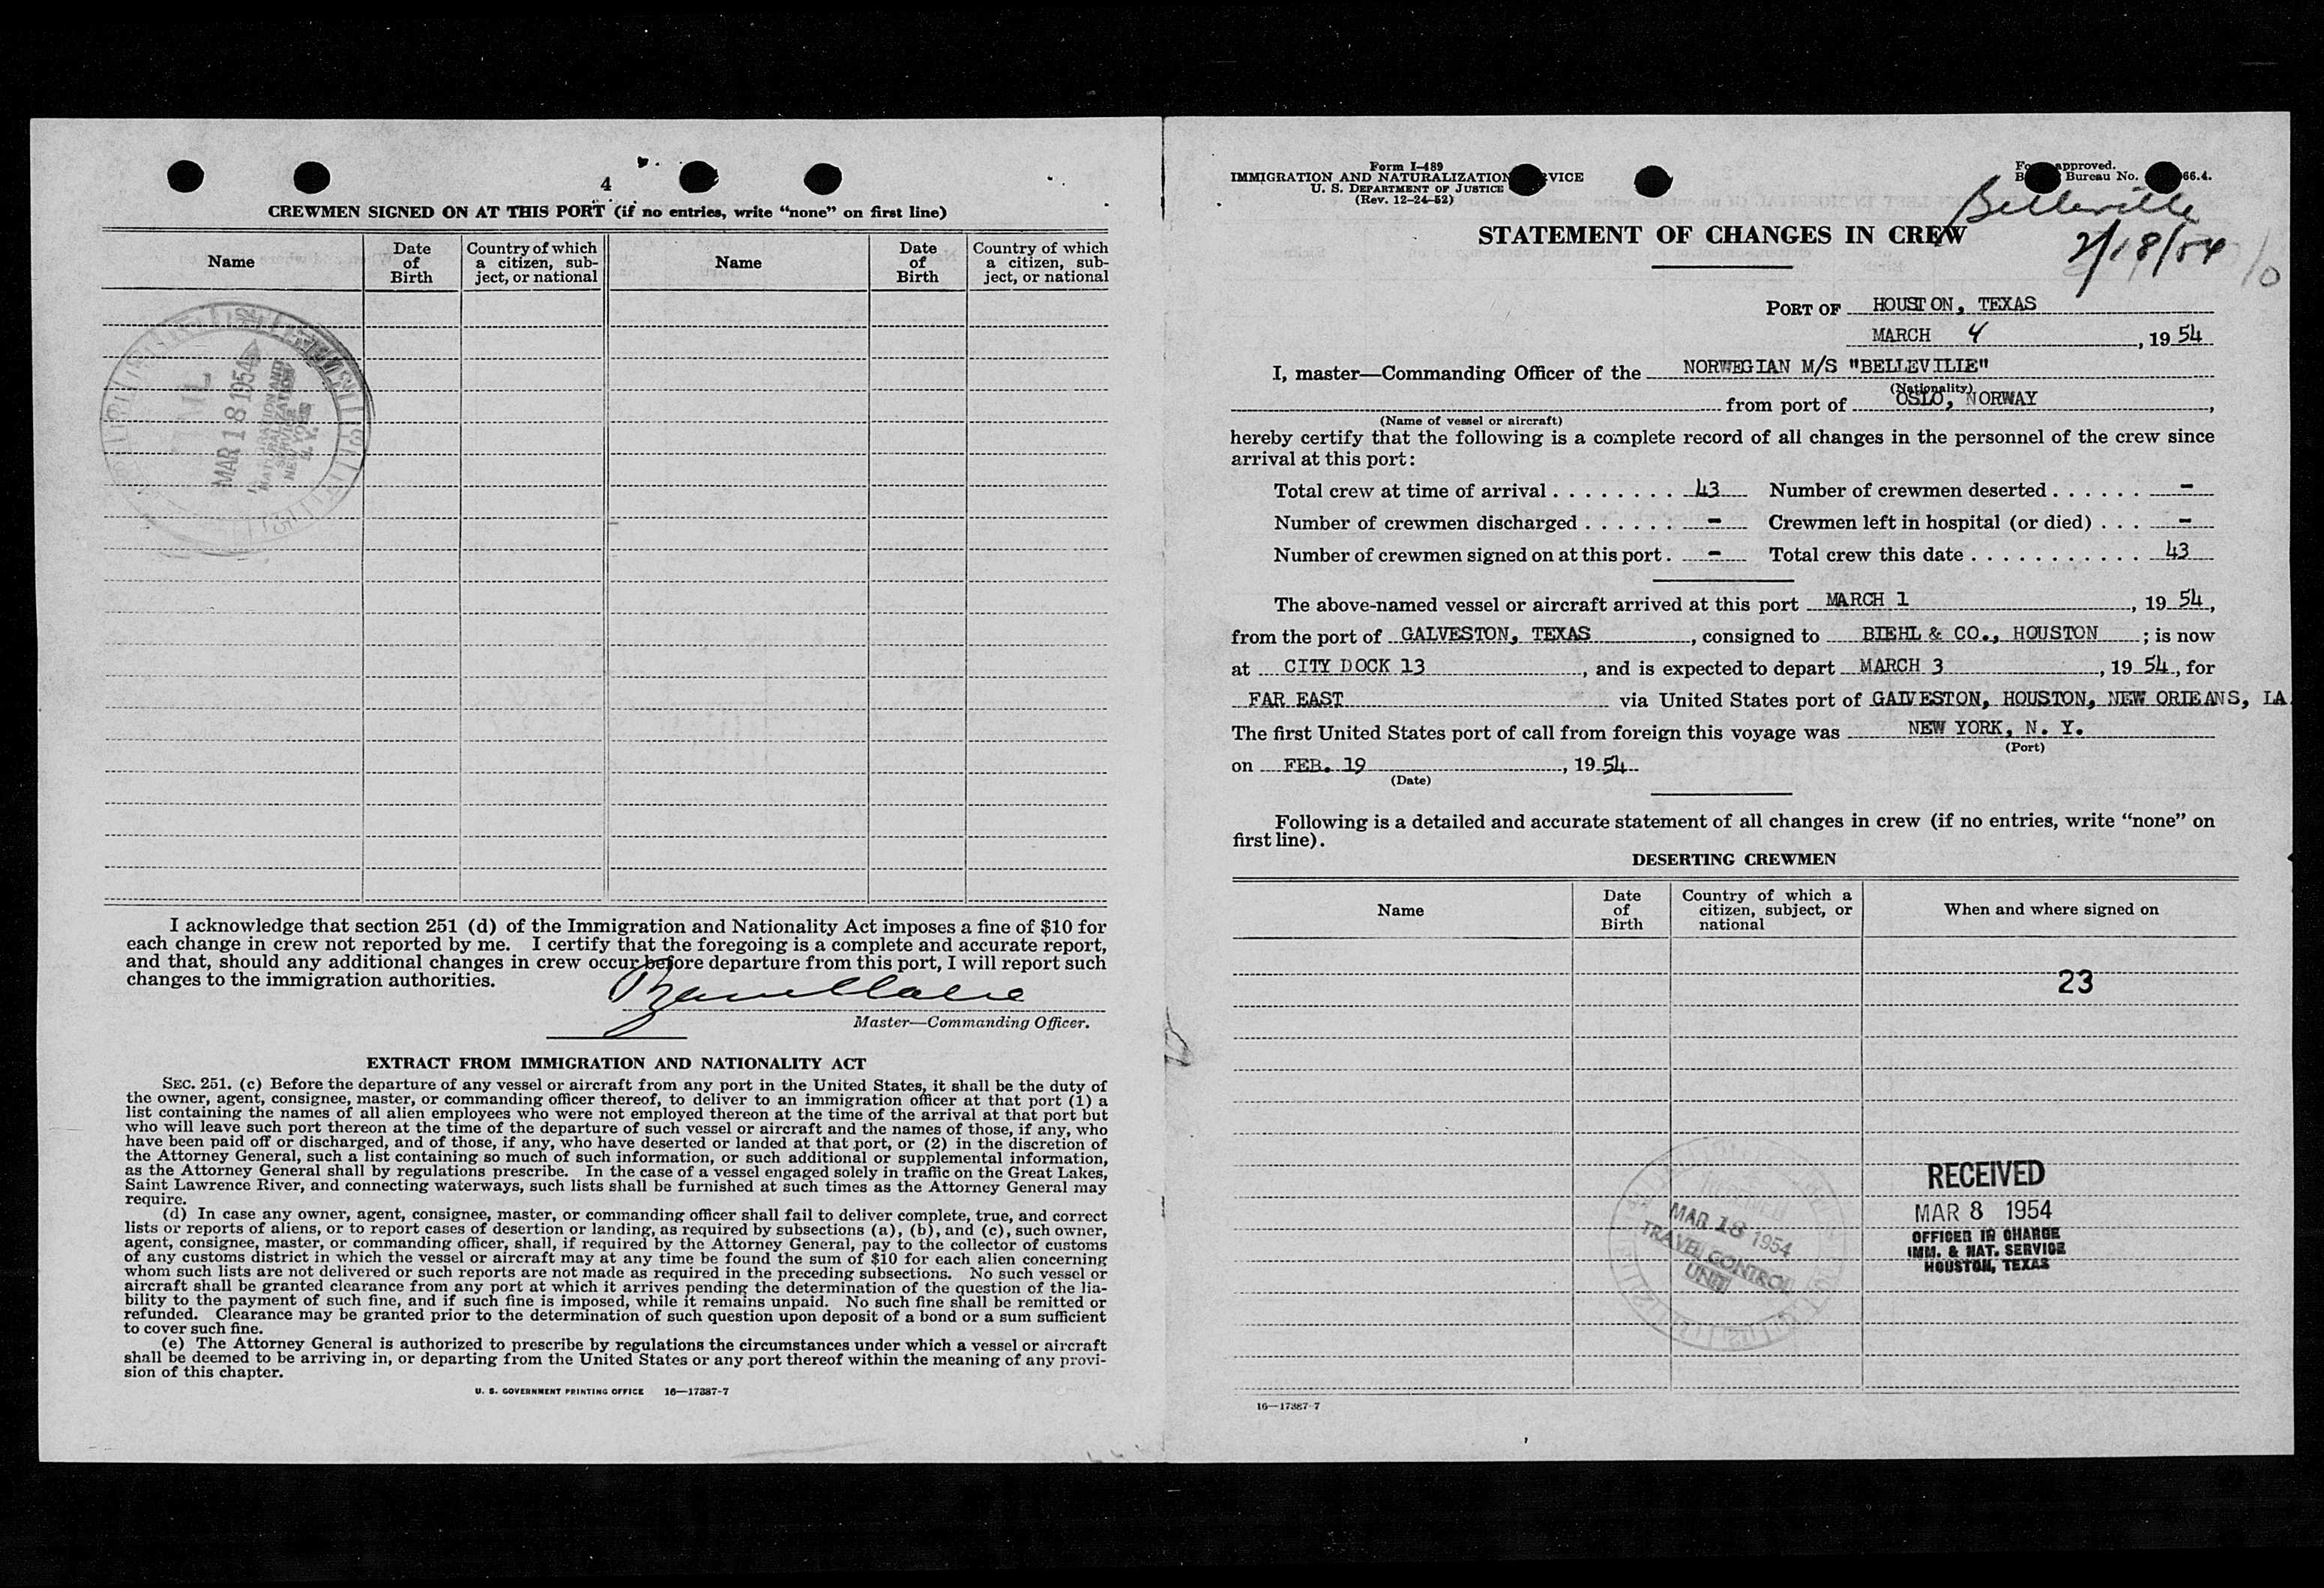 4
CREWMEN SIGNED ON AT THIS PORT (if no entries, write “none” on first line)
Name
Date of Birth
Country of which a citizen, sub-ject, or national
Name
Date of Birth
Country of which a citizen, sub-ject, or national
MAR 18 1954
IMMIGRATION AND
NATURALIZATION
SERVICE
NEW YORK
N. Y.
I acknowledge that section 251 (d) of the Immigration and Nationality Act imposes a fine of $10 for
each change in crew not reported by me. I certify that the foregoing is a complete and accurate report,
and that, should any additional changes in crew occur before departure from this port, I will report such
changes to the immigration authorities.
Master—Commanding Officer.
EXTRACT FROM IMMIGRATION AND NATIONALITY ACT
SEC. 251. (c) Before the departure of any vessel or aircraft from any port in the United States, it shall be the duty of
the owner, agent, consignee, master, or commanding officer thereof, to deliver to an immigration officer at that port (1) a
list containing the names of all alien employees who were not employed thereon at the time of the arrival at that port but
who will leave such port thereon at the time of the departure of such vessel or aircraft and the names of those, if any, who
have been paid off or discharged, and of those, if any, who have deserted or landed at that port, or (2) in the discretion of
the Attorney General, such a list containing so much of such information, or such additional or supplemental information,
as the Attorney General shall by regulations prescribe. In the case of a vessel engaged solely in traffic on the Great Lakes,
Saint Lawrence River, and connecting waterways, such lists shall be furnished at such times as the Attorney General may
require.
(d) In case any owner, agent, consignee, master, or commanding officer shall fail to deliver complete, true, and correct
lists or reports of aliens, or to report cases of desertion or landing, as required by subsections (a), (b), and (c), such owner,
agent, consignee, master, or commanding officer, shall, if required by the Attorney General, pay to the collector of customs
of any customs district in which the vessel or aircraft may at any time be found the sum of $10 for each alien concerning
whom such lists are not delivered or such reports are not made as required in the preceding subsections. No such vessel or
aircraft shall be granted clearance from any port at which it arrives pending the determination of the question of the lia-
bility to the payment of such fine, and if such fine is imposed, while it remains unpaid. No such fine shall be remitted or
refunded. Clearance may be granted prior to the determination of such question upon deposit of a bond or a sum sufficient
to cover such fine.
(e) The Attorney General is authorized to prescribe by regulations the circumstances under which a vessel or aircraft
shall be deemed to be arriving in, or departing from the United States or any port thereof within the meaning of any provi-
sion of this chapter.
U. S. GOVERNMENT PRINTING OFFICE 16—17387-7
Form I-489
IMMIGRATION AND NATURALIZATION VICE
U. S. DEPARTMENT OF JUSTICE
(Rev. 12-24-52)
approved.
Bureau No. 66.4.
Belleville
2/18/54
10
STATEMENT OF CHANGES IN CREW
PORT OF HOUSTON, TEXAS
MARCH 4, 1954
I, master—Commanding Officer of the NORWEGIAN M/S "BELLEVILLE"
(Nationality)
from port of OSLO, NORWAY,
(Name of vessel or aircraft)
hereby certify that the following is a complete record of all changes in the personnel of the crew since
arrival at this port:
Total crew at time of arrival . . . . . . . . 43 Number of crewmen deserted . . . . . . -
Number of crewmen discharged . . . . . . - Crewmen left in hospital (or died) . . . -
Number of crewmen signed on at this port. - Total crew this date . . . . . . . . . . . 43
The above-named vessel or aircraft arrived at this port MARCH 1, 1954,
from the port of GALVESTON, TEXAS, consigned to BIEHL & CO., HOUSTON; is now
at CITY DOCK 13, and is expected to depart MARCH 3, 1954, for
FAR EAST via United States port of GALVESTON, HOUSTON, NEW ORLEANS, LA
The first United States port of call from foreign this voyage was NEW YORK, N. Y.
(Port)
on FEB. 19, 1954
(Date)
Following is a detailed and accurate statement of all changes in crew (if no entries, write “none” on
first line).
DESERTING CREWMEN
Name
Date of Birth
Country of which a citizen, subject, or national
When and where signed on
23
MAR 18 1954
TRAVEL CONTROL
UNIT
RECEIVED
MAR 8 1954
OFFICER IN CHARGE
IMM. & NAT. SERVICE
HOUSTON, TEXAS
16—17387-7